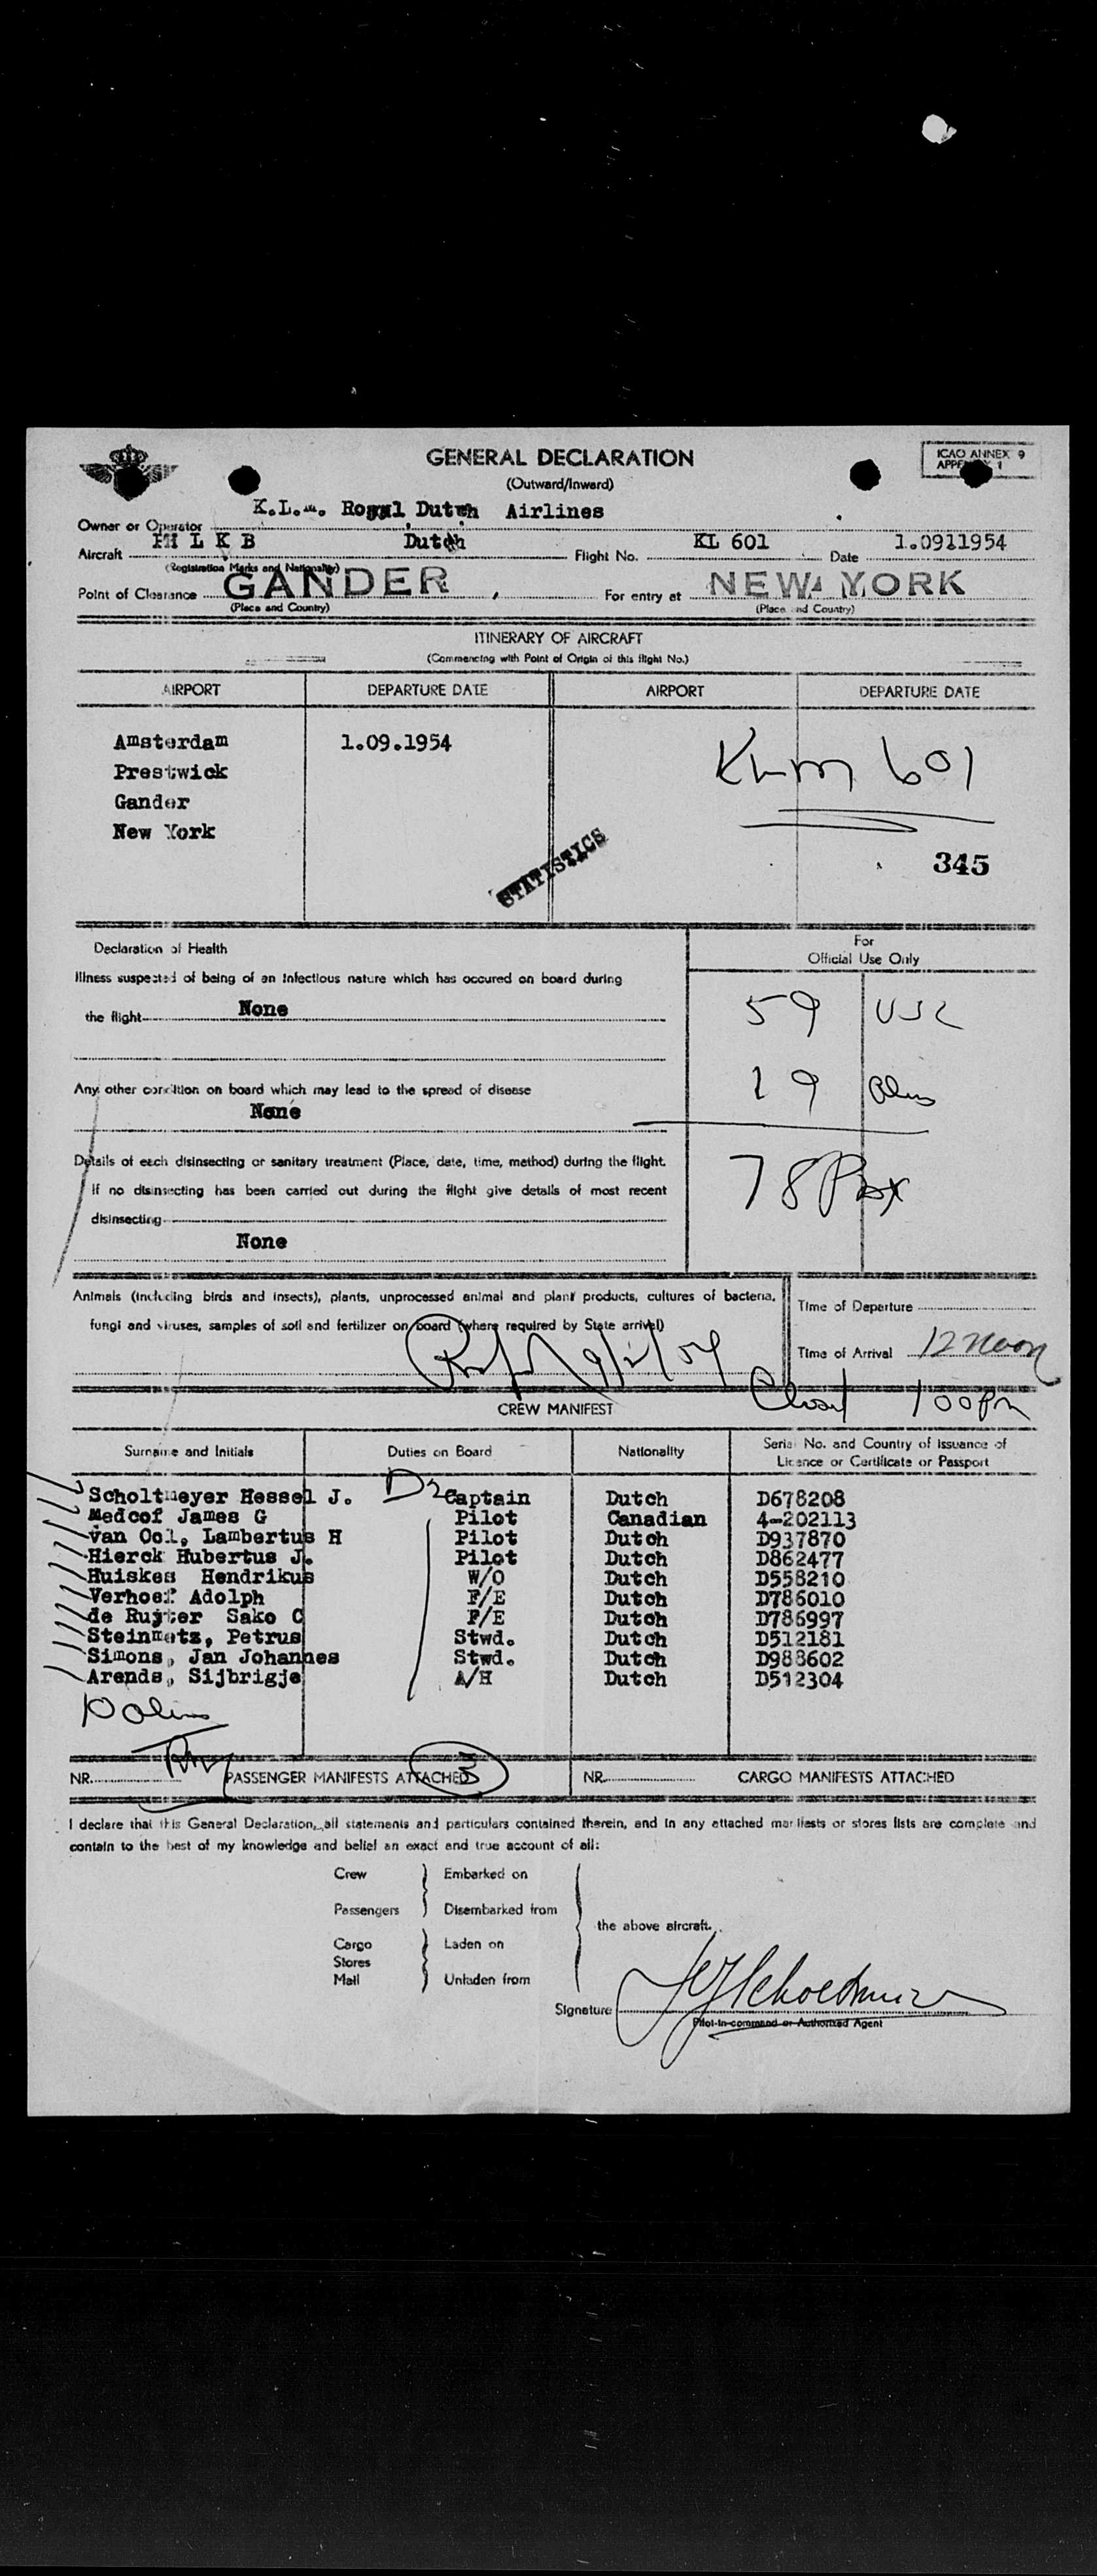 GENERAL DECLARATION
(Outward/Inward)
ICAO ANNEX 9
1
K.L.M. Royal Dutch Airlines
Owner or Operator
PH L K B Dutch KL 601 1.0911954
Aircraft Flight No. Date
(Registration Marks and Nationality)
Point of Clearance GANDER For entry at NEW YORK
(Place and Country) (Place and Country)
ITINERARY OF AIRCRAFT
(Commencing with Point of Origin of this flight No.)
AIRPORT DEPARTURE DATE AIRPORT DEPARTURE DATE
Amsterdam 1.09.1954
KLM 601
Prestwick
Gander
New York
STATISTICS
345
Declaration of Health
For
Official Use Only
Illness suspected of being of an infectious nature which has occured on board during
the flight None
59 USC
Any other condition on board which may lead to the spread of disease
None
19 Alns
Details of each disinsecting or sanitary treatment (Place, date, time, method) during the flight.
If no disinsecting has been carried out during the flight give details of most recent
disinsecting
78 Pax
None
Animals (including birds and insects), plants, unprocessed animal and plant products, cultures of bacteria,
fungi and viruses, samples of soil and fertilizer on board (where required by State arrival)
Time of Departure
Time of Arrival 12 noon
100 Pm
CREW MANIFEST
Surname and Initials Duties on Board Nationality Serial No. and Country of Issuance of
Licence or Certificate or Passport
D2
Scholtmeyer Hessel J. Captain Dutch D678208
Medcof James G Pilot Canadian 4-202113
van Ool, Lambertus H Pilot Dutch D937870
Hierck Hubertus J. Pilot Dutch D862477
Huiskes Hendrikus W/O Dutch D558210
Verhoef Adolph F/E Dutch D786010
de Rujter Sako C F/E Dutch D786997
Steinmetz, Petrus Stwd. Dutch D512181
Simons, Jan Johannes Stwd. Dutch D988602
Arends, Sijbrigje A/H Dutch D512304
10 Alns
NR. PASSENGER MANIFESTS ATTACHED 3 NR. CARGO MANIFESTS ATTACHED
I declare that this General Declaration, all statements and particulars contained therein, and in any attached manifests or stores lists are complete and
contain to the best of my knowledge and belief an exact and true account of all:
Crew Embarked on
Passengers Disembarked from
the above aircraft.
Cargo Laden on
Stores
Mail Unladen from
Signature
Pilot-in-command or Authorized Agent